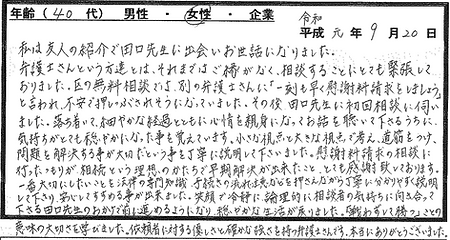 年齢(40代) 男性・女性・企業
令和
平成 元年 9月20日
私は友人の紹介で田口先生に出会いお世話になりました。
弁護士さんという方達とは、それまではご縁がなく、相談することにとても緊張して
おりました。区の無料相談では、別の弁護士さんに「一刻も早く慰謝料請求をしましょう」
と言われ、不安で押しつぶされそうになっていました。その後 田口先生に初回相談に伺い
ました。落ち着いて、細やかな経過とともに心情を親身になってお話を聴いて下さるうちに、
気持ちがとても穏やかになった事を覚えています。小さな視点と大きな視点で考え、道筋をつけ、
問題を解決する事が大切だという事を丁寧に説明して下さいました。慰謝料請求の相談に
行ったつもりが 和睦という理想のかたちで早期解決が出来たこと、とても感謝致しております。
一番大切にしたいことを法律の専門知識、手続きの流れ
を押さえながら丁寧に分かりやすく説明
して下さり、安心してすすめる事が出来ました。笑顔で冷静に、論理的に相談者の気持ちに向き合って
下さる田口先生のおかげで前に進めるようになり、穏やかな生活が戻りました。「戦わずして勝つ」ことの
意味の大切さを学びました。依頼者に対する優しさと確かな強さを持つ弁護士さんです。本当にありがとうございました。